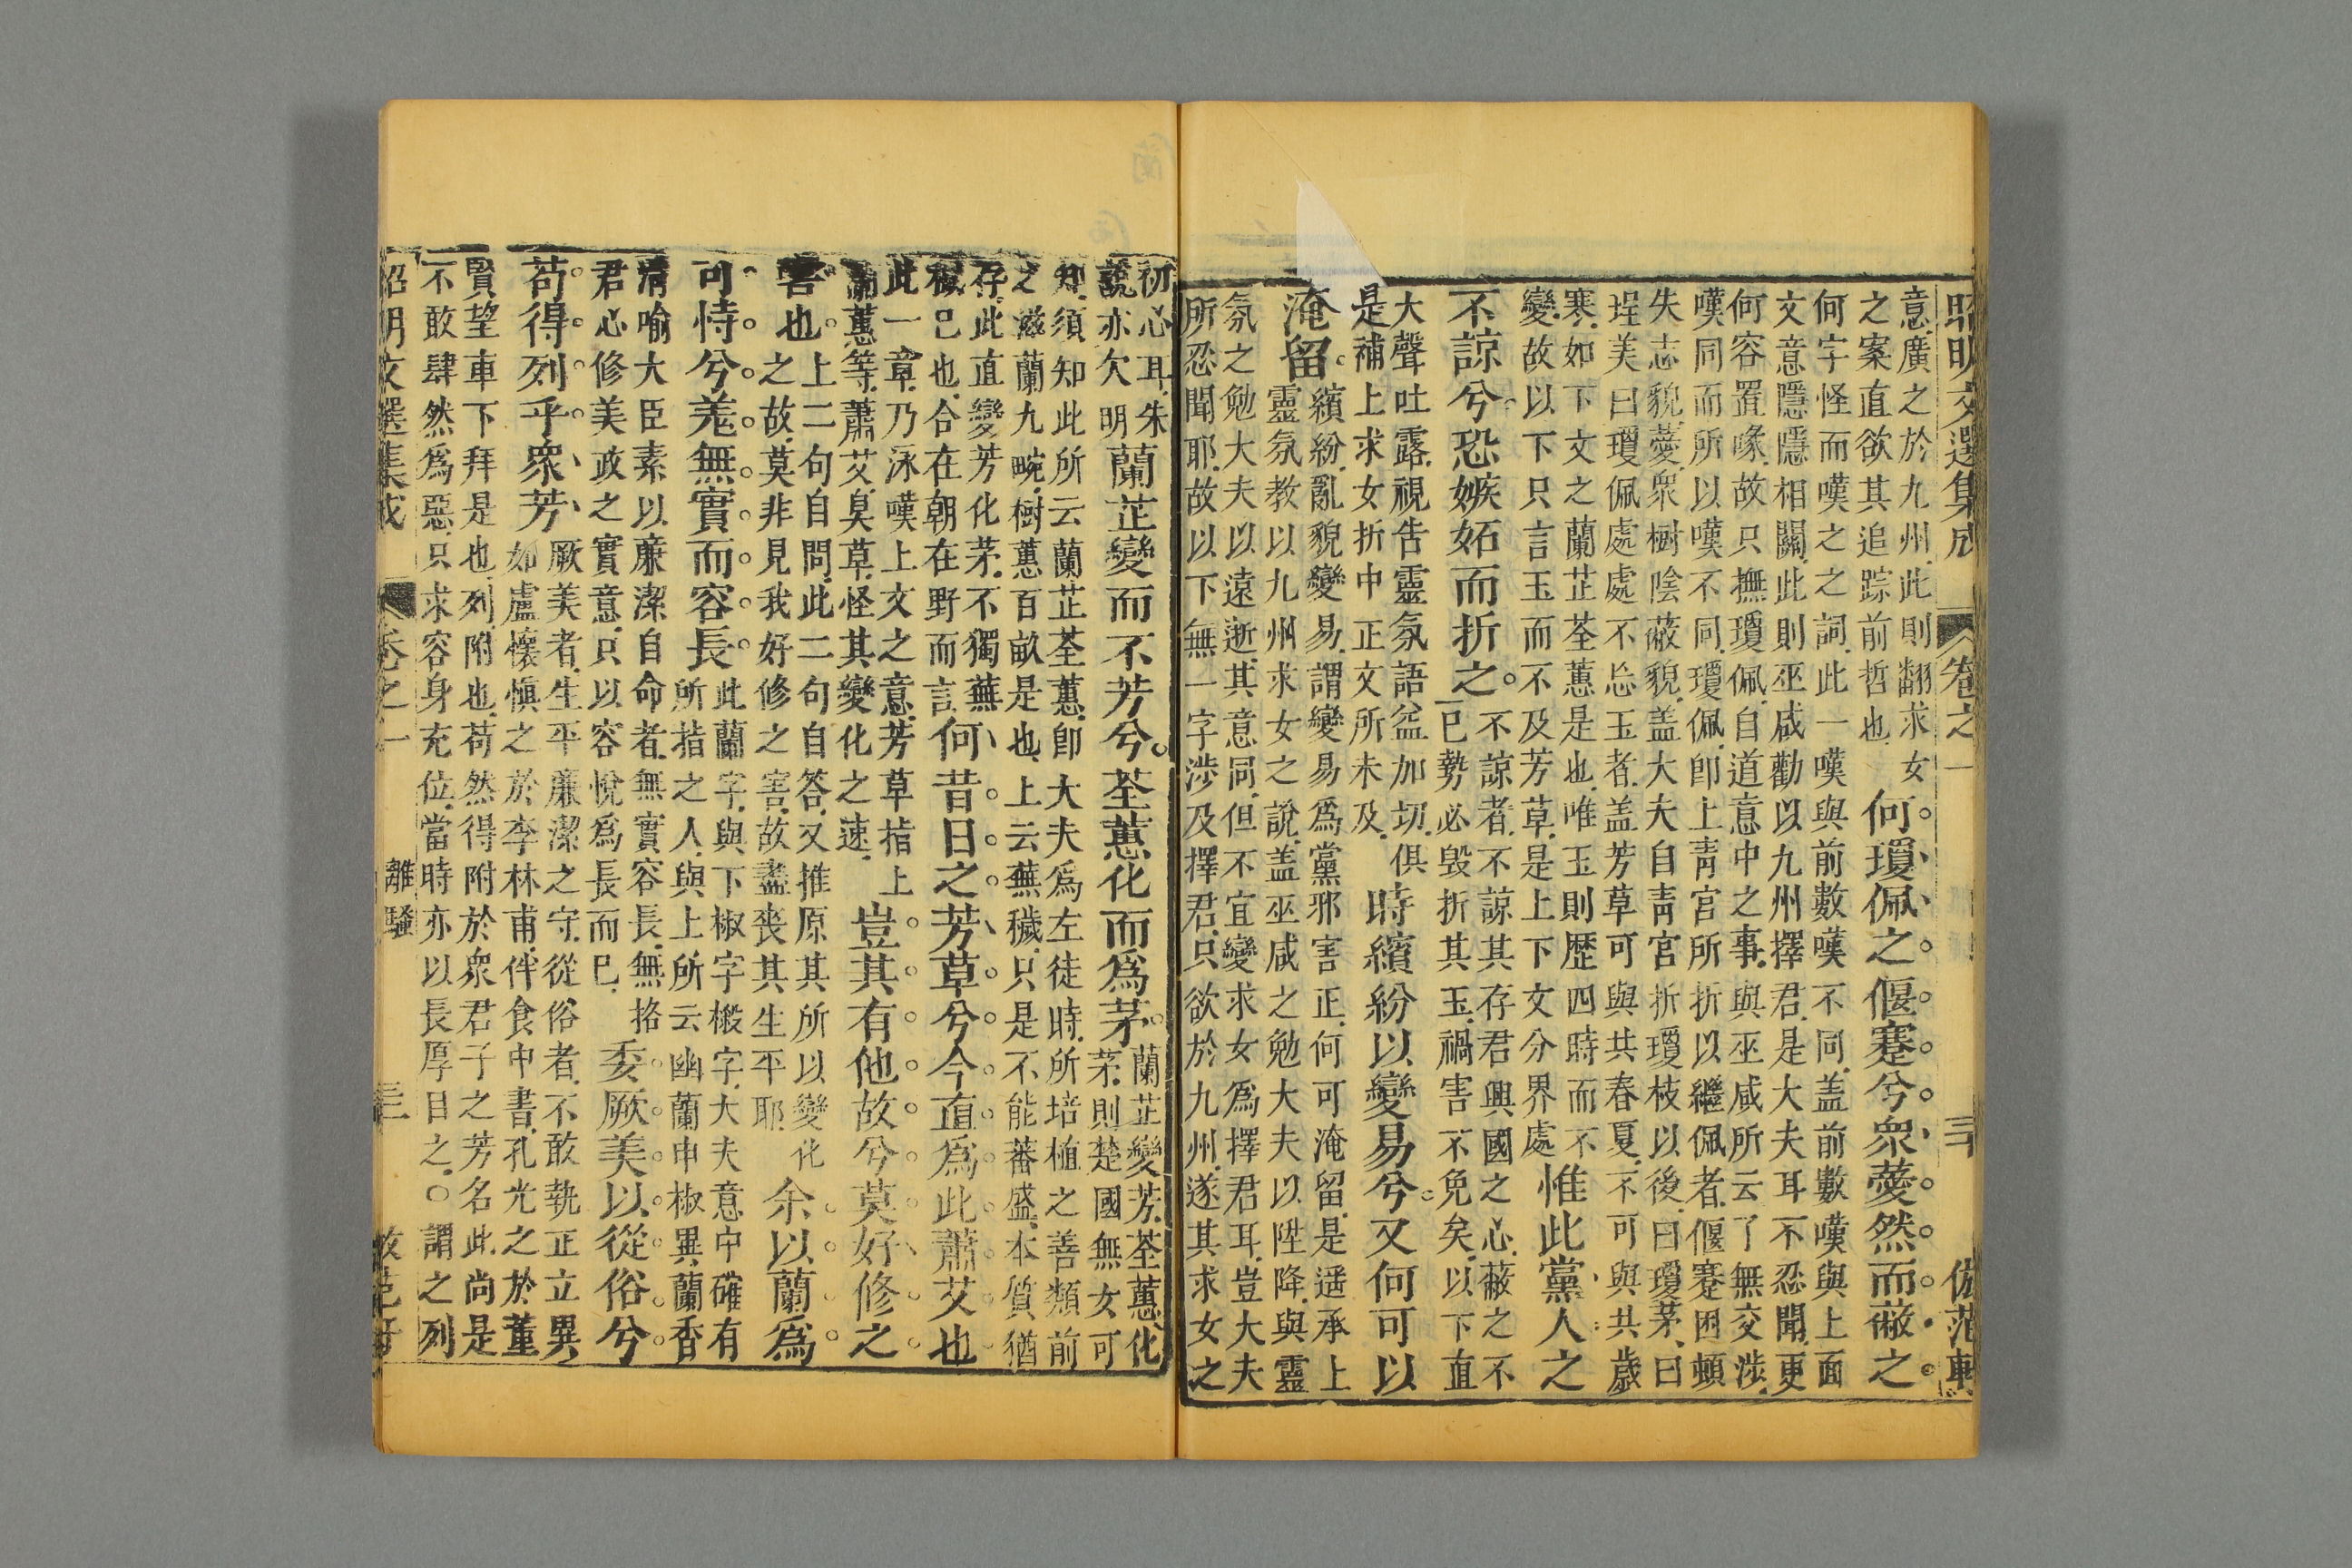 昭明文選集成 卷之一 三十 倣范軒
意廣之於九州此則翻求女
之案直欲其追踪前哲也
何瓊佩之偃蹇兮衆薆然而蔽之
何字怪而嘆之之詞此一嘆與前數嘆不同盖前數嘆與上面
文意隱隱相關此則巫咸勸以九州擇君是大夫耳不忍聞更
何容置喙故只撫瓊佩自道意中之事與巫咸所云了無交涉
嘆同而所以嘆不同瓊佩卽上靑宮所折以繼佩者偃蹇困頓
失志貌薆衆樹陰蔽貌盖大夫自靑宮折瓊枝以後曰瓊茅曰
珵美曰瓊佩處處不忘玉者盖芳草可與共春夏不可與共歲
寒如下文之蘭芷荃蕙是也唯玉則歷四時而不
變故以下只言玉而不及芳草是上下文分界處
惟此黨人之
不諒兮恐嫉妬而折之
不諒者不諒其存君興國之心蔽之不
已勢必毀折其玉禍害不免矣以下直
大聲吐露視告靈氛語益加切俱
是補上求女折中正文所未及
時繽紛以變易兮又何可以
淹留
繽紛亂貌變易謂變易爲黨邪害正何可淹留是遥承上
靈氛教以九州求女之說盖巫咸之勉大夫以陞降與靈
氛之勉大夫以遠逝其意同但不宜變求女爲擇君耳豈大夫
所忍聞耶故以下無一字涉及擇君只欲於九州遂其求女之
初心耳朱
說亦欠明
蘭芷變而不芳兮荃蕙化而爲茅
蘭芷變芳荃蕙化
茅則楚國無女可
知須知此所云蘭芷荃蕙卽大夫爲左徒時所培植之善類前
之滋蘭九畹樹蕙百畝是也上云蕪穢只是不能蕃盛本質猶
存此直變芳化茅不獨蕪
穢已也合在朝在野而言
何昔日之芳草兮今直爲此蕭艾也
此一章乃泳嘆上文之意芳草指上
蘭蕙等蕭艾臭草怪其變化之速
豈其有他故兮莫好修之
害也
上二句自問此二句自答又推原其所以變化
之故莫非見我好修之害故盡喪其生平耶
余以蘭爲
可恃兮羗無實而容長
此蘭字與下椒字樧字大夫意中確有
所指之人與上所云幽蘭申椒異蘭香
淸喻大臣素以廉潔自命者無實容長無挌
君心修美政之實意只以容悅爲長而已
委厥美以從俗兮
苟得列乎衆芳
厥美者生平廉潔之守從俗者不敢執正立異
如盧懷愼之於李林甫伴食中書孔光之於董
賢望車下拜是也列附也苟然得附於衆君子之芳名此尚是
不敢肆然爲惡只求容身充位當時亦以長厚目之○謂之列
昭明文選集成 卷之一 離騷 三